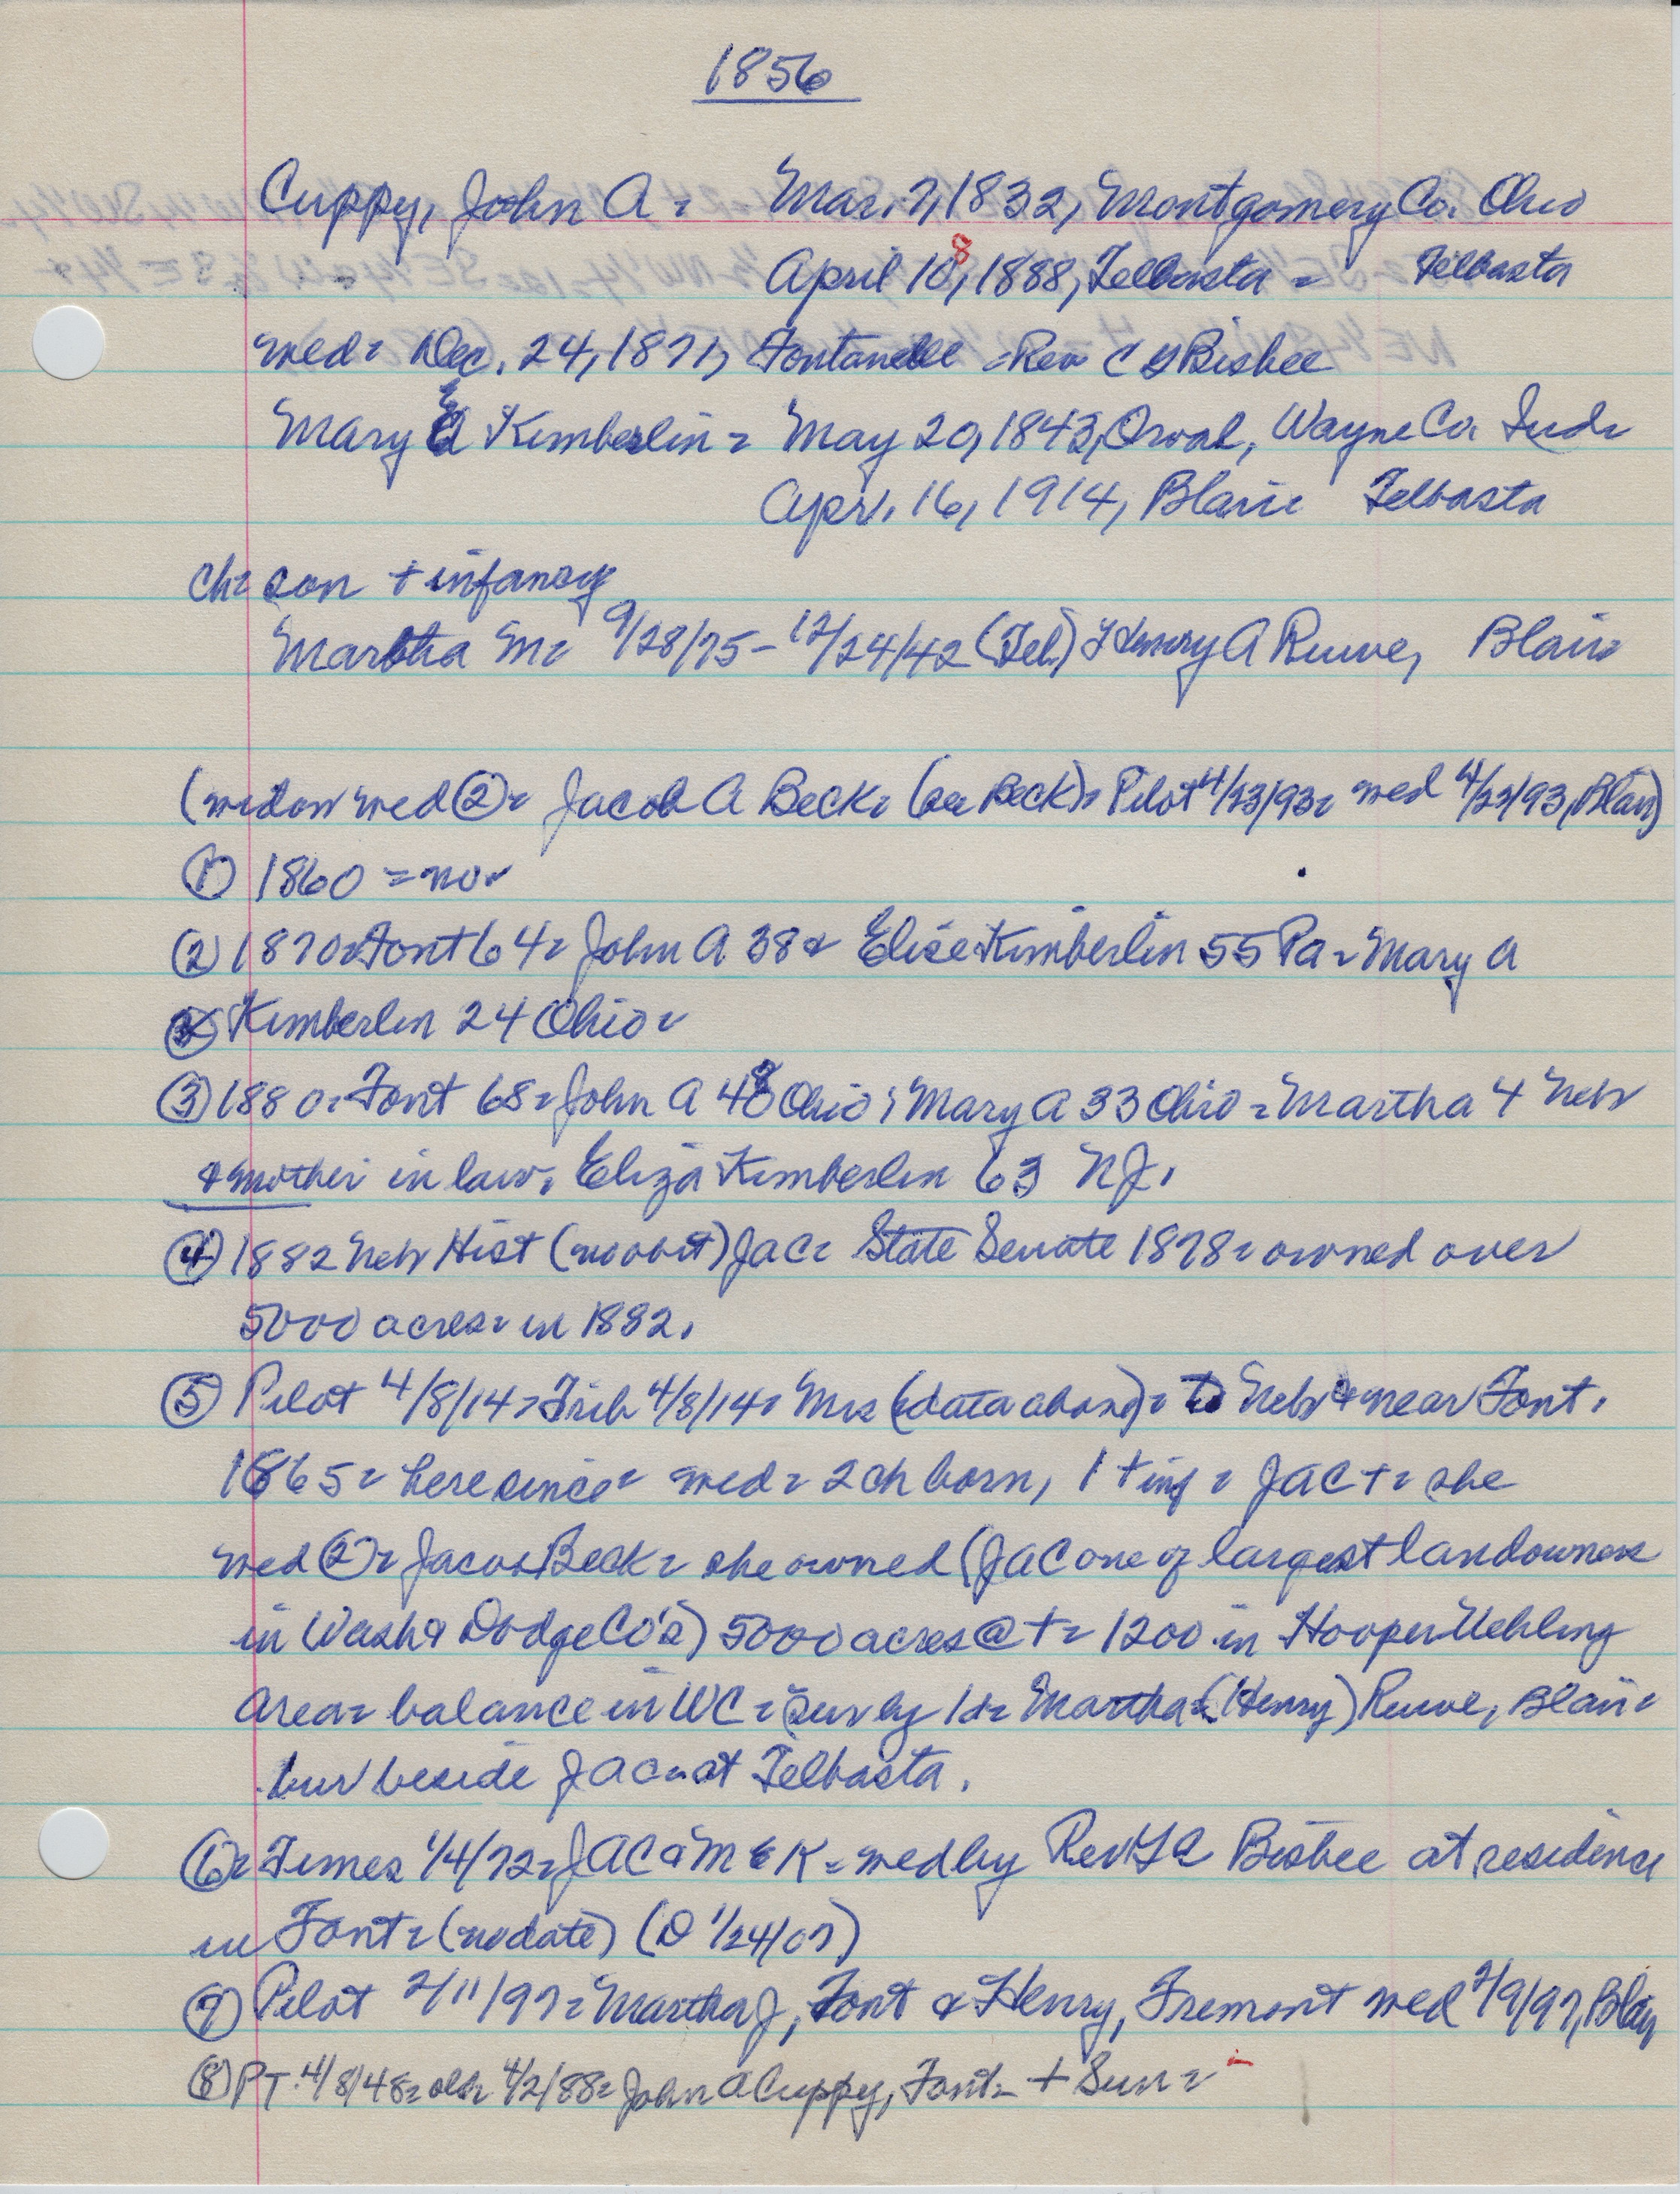 1856
Cuppy, John A = Mar. 7, 1832, Montgomery Co. Ohio
April 10, 1888, Telbasta = Telbasta
8
med = Dec. 24, 1871, Fontanelle = Rev C G Bisbee
Mary E Kimberlin = May 20, 1843, Orval, Wayne Co. Ind =
Apr. 16, 1914, Blair = Telbasta
ch = son + infancy
Martha M = 9/28/75 - 12/24/42 (Tel.) Henry A Ruwe, Blair
(widow med ② = Jacob A Beck = (see Beck) = Pilot 4/13/93 = med 4/23/93, Blair)
① 1860 = no =
② 1870 = Font 64 = John A 38 & Elise Kimberlin 55 Pa = Mary A
Kimberlin 24 Ohio =
③ 1880 = Font 68 = John A 48 Ohio; Mary A 33 Ohio = Martha 4 Nebr
& mother in law, Eliza Kimberlin 63 NJ.
④ 1882 Neb Hist (no obit) JAC = State Senate 1878 = owned over
5000 acres = in 1882.
⑤ Pilot 4/8/14 = Trib 4/8/14 = Mrs (data above) = to Nebr & near Font.
1865 = here since = med = 2 ch born, 1 + inf = JAC + = she
med ② = Jacob Beck = she owned (JAC one of largest landowners
in Wash & Dodge Co's) 5000 acres @ + = 1200 in Hooper Uehling
area = balance in WC = Surv by 1 d = Martha = (Henry) Ruwe, Blair =
bur beside JAC = at Telbasta.
⑥ = Times 1/4/72 = JAC & M E K = med by Rev Bisbee at residence
in Font = (no date) (D 1/24/07)
⑦ Pilot 2/11/97 = Martha J, Font & Henry, Fremont med 2/9/97, Blair
⑧ PT. 4/8/48 = old 4/2/88 = John A Cuppy, Font = + Sun =